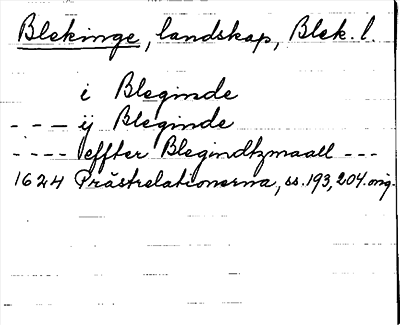 Blekinge, landskap, Blek. l.
i Bleginde
- - - ij Bleginde
- - - - effter Blegindtzmaall - - -
1624 Prästrelationerna, ss. 193, 204. orig.